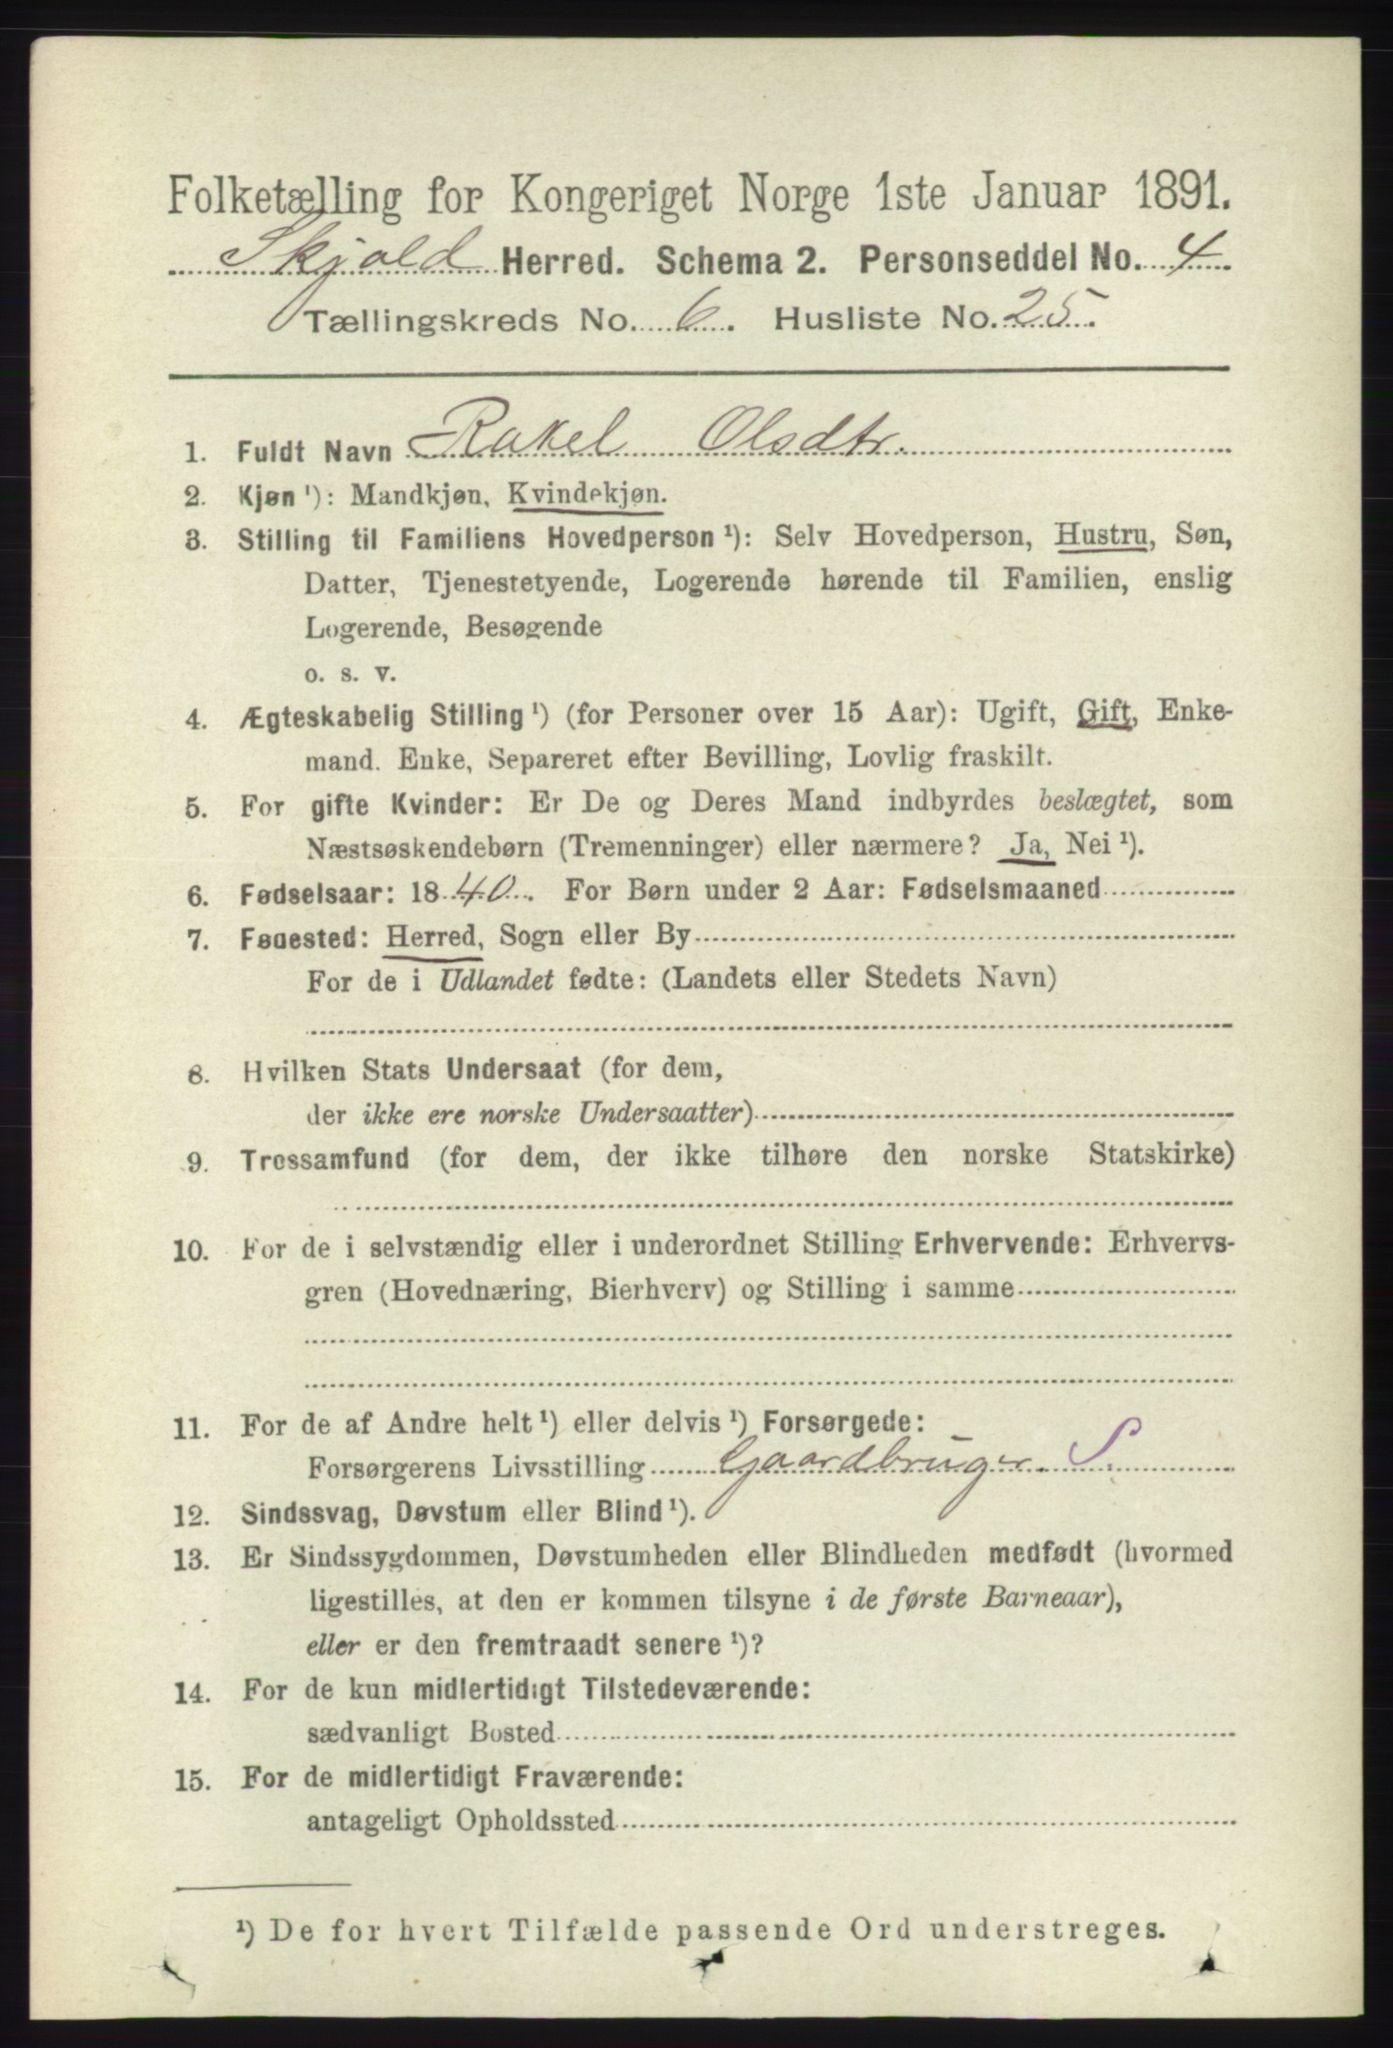 Folketælling for Kongeriget Norge 1ste Januar 1891.
Skjold Herred. Schema 2. Personseddel No. 4
Tællingskreds No. 6. Husliste No. 25.
1. Fuldt Navn Rakel Olsdtr.
2. Kjøn ¹): Mandkjøn, Kvindekjøn.
3. Stilling til Familiens Hovedperson ¹): Selv Hovedperson, Hustru, Søn,
Datter, Tjenestetyende, Logerende hørende til Familien, enslig
Logerende, Besøgende
o. s. v.
4. Ægteskabelig Stilling ¹) (for Personer over 15 Aar): Ugift, Gift, Enke-
mand. Enke, Separeret efter Bevilling, Lovlig fraskilt.
5. For gifte Kvinder: Er De og Deres Mand indbyrdes beslægtet, som
Næstsøskendebørn (Tremenninger) eller nærmere? Ja, Nei ¹).
6. Fødselsaar: 1840. For Børn under 2 Aar: Fødselsmaaned
7. Fødested: Herred, Sogn eller By
For de i Udlandet fødte: (Landets eller Stedets Navn)
8. Hvilken Stats Undersaat (for dem,
der ikke ere norske Undersaatter)
9. Trossamfund (for dem, der ikke tilhøre den norske Statskirke)
10. For de i selvstændig eller i underordnet Stilling Erhvervende: Erhvervs-
gren (Hovednæring, Bierhverv) og Stilling i samme
11. For de af Andre helt ¹) eller delvis ¹) Forsørgede:
Forsørgerens Livsstilling Gaardbruger S.
12. Sindssvag, Døvstum eller Blind ¹).
13. Er Sindssygdommen, Døvstumheden eller Blindheden medfødt (hvormed
ligestilles, at den er kommen tilsyne i de første Barneaar),
eller er den fremtraadt senere ¹)?
14. For de kun midlertidigt Tilstedeværende:
sædvanligt Bosted
15. For de midlertidigt Fraværende:
antageligt Opholdssted
¹) De for hvert Tilfælde passende Ord understreges.